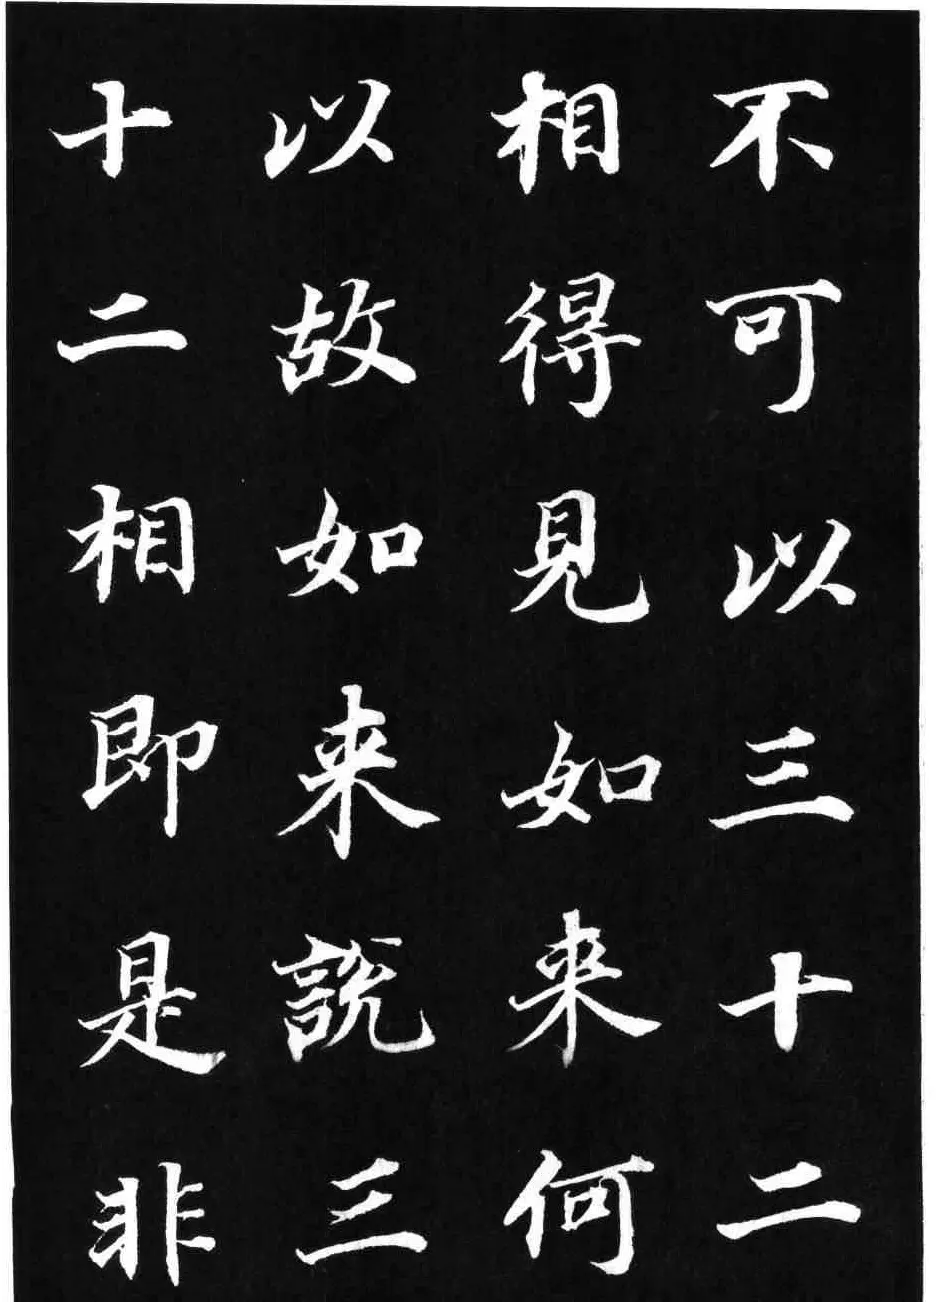 不可以三十二
相得見如来何
以故如来説三
十二相即是非